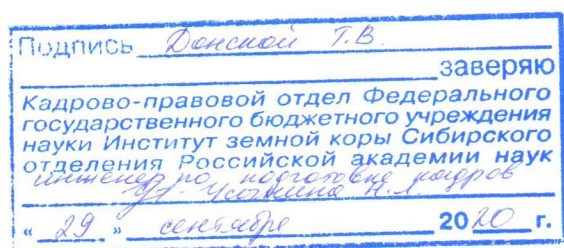 Подпись Донской Т.В.
заверяю
Кадрово-правовой отдел Федерального
государственного бюджетного учреждения
науки Институт земной коры Сибирского
отделения Российской академии наук
инженер по подготовке кадров
« 29 » сентября 2020 г.